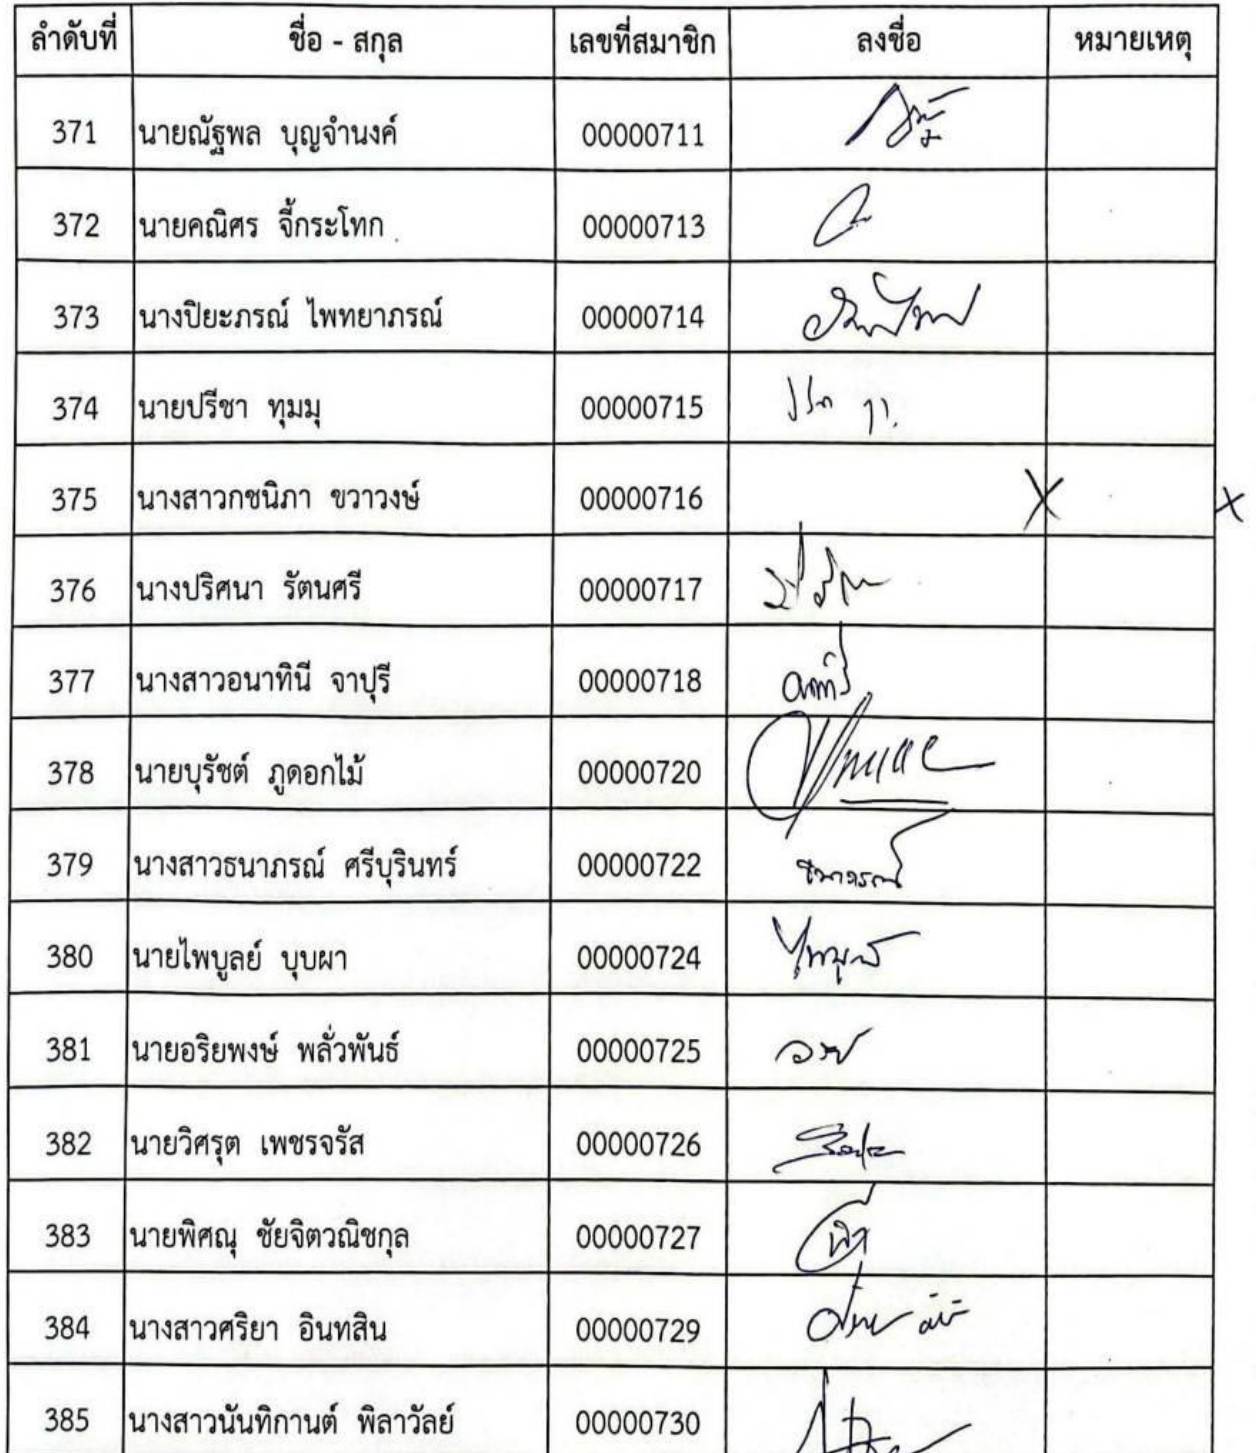 ลำดับที่ ชื่อ - สกุล เลขที่สมาชิก ลงชื่อ หมายเหตุ
371 นายณัฐพล บุญจำนงค์ 00000711
372 นายคณิศร จี้กระโทก 00000713
373 นางปิยะภรณ์ ไพทยาภรณ์ 00000714
374 นายปรีชา ทุมมุ 00000715
375 นางสาวกชนิภา ขวาวงษ์ 00000716 X X
376 นางปริศนา รัตนศรี 00000717
377 นางสาวอนาทินี จาปุรี 00000718
378 นายบุรัชต์ ภูดอกไม้ 00000720
379 นางสาวธนาภรณ์ ศรีบุรินทร์ 00000722 ธนาภรณ์
380 นายไพบูลย์ บุบผา 00000724 ไพบูลย์
381 นายอริยพงษ์ พลั่วพันธ์ 00000725
382 นายวิศรุต เพชรจรัส 00000726
383 นายพิศณุ ชัยจิตวณิชกุล 00000727
384 นางสาวศริยา อินทสิน 00000729
385 นางสาวนันทิกานต์ พิลาวัลย์ 00000730